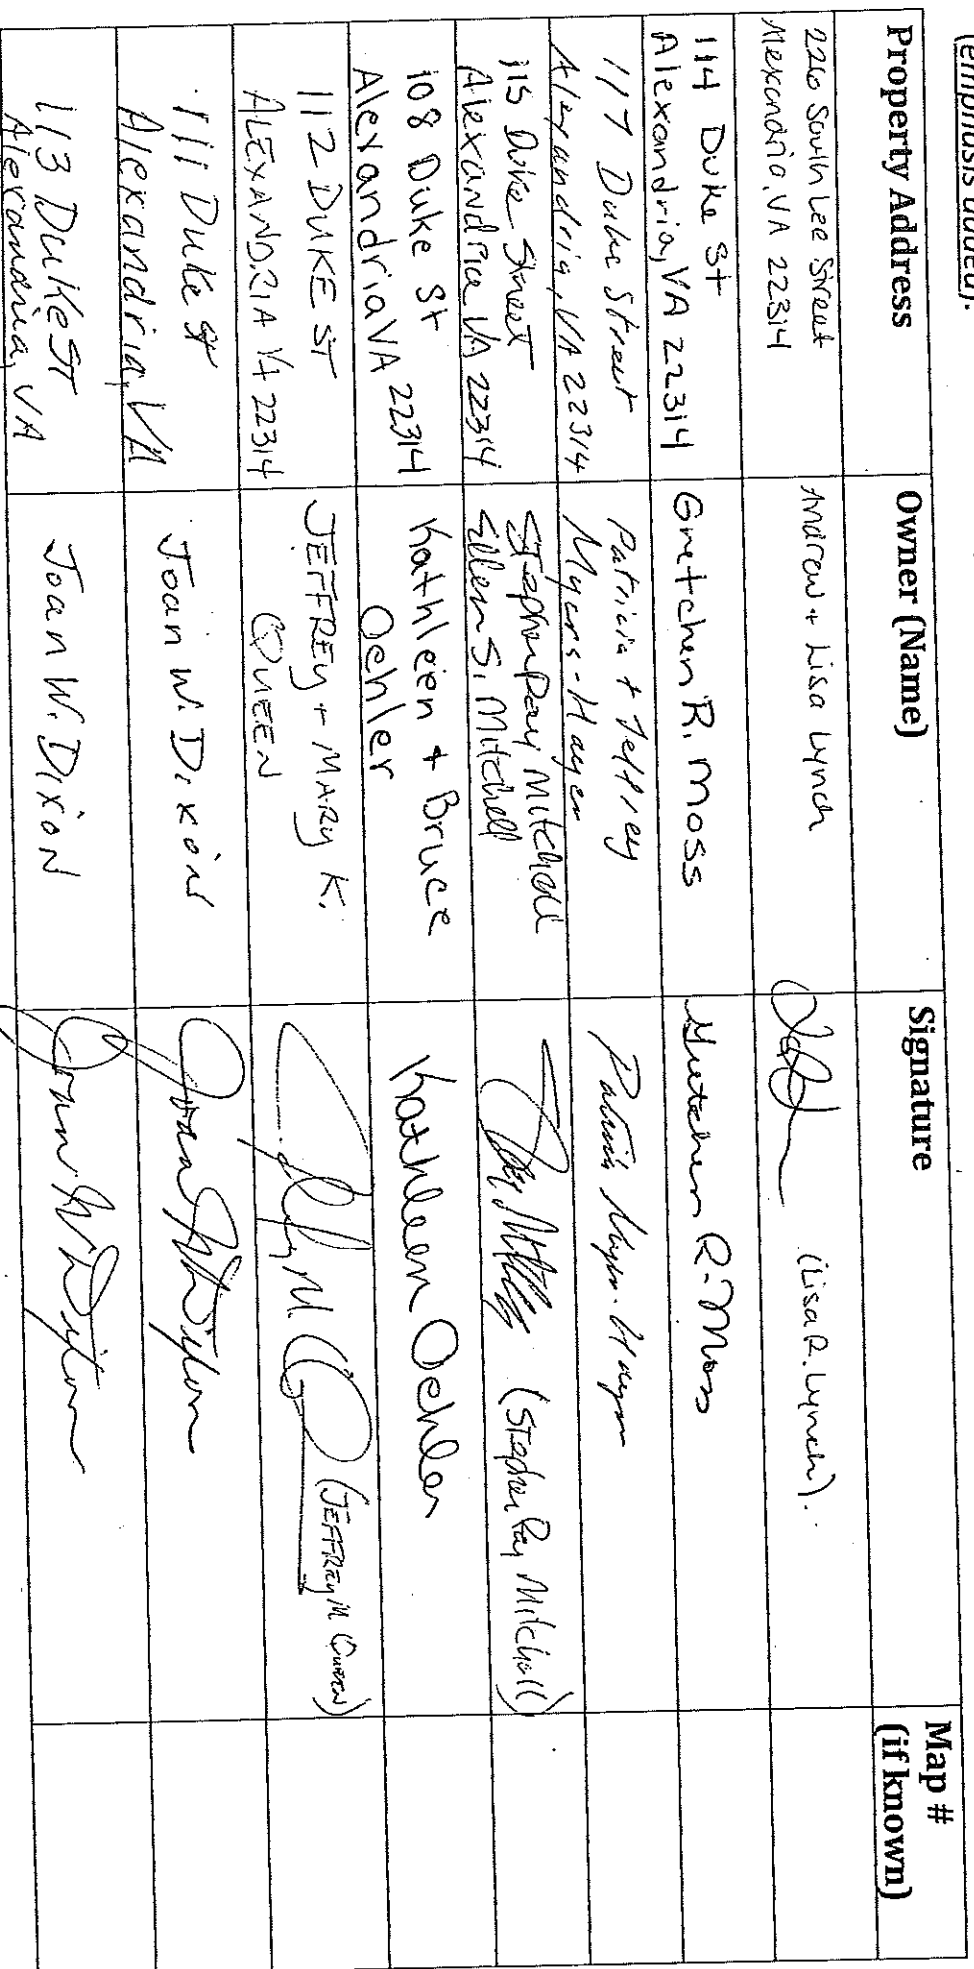 (emphasis added).
Property Address
Owner (Name)
Signature
Map #
(if known)
226 South Lee Street
Alexandria, VA 22314
Andrew + Lisa Lynch
(Lisa R. Lynch).
114 Duke St
Alexandria, VA 22314
Gretchen R. Moss
Gretchen R. Moss
117 Duke Street
Alexandria, VA 22314
Patricia + Jeffrey
Myers-Hayer
Patricia Myers-Hayer
115 Duke Street
Alexandria VA 22314
Stephen Day Mitchell
Ellen S. Mitchell
(Stephen Day Mitchell)
108 Duke St
Alexandria VA 22314
Kathleen + Bruce
Oehler
Kathleen Oehler
112 DUKE ST
ALEXANDRIA VA 22314
JEFFREY + MARY K.
QUEEN
(JEFFREY M QUEEN)
111 Duke St
Alexandria, VA
Joan W. Dixon
113 DUKE ST
Alexandria, VA
Joan W. Dixon